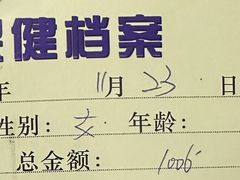 健档案
年 11月 23 日
性别: 女 年龄:
总金额: 1006